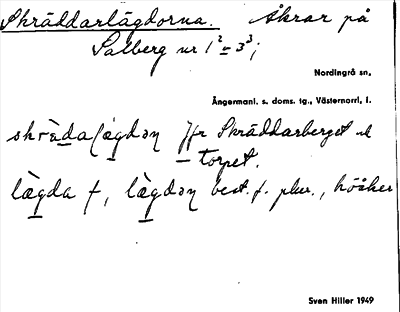 Skräddarlägdorna. Åkrar på
Salberg nr 1² = 3³;
Nordingrå sn,
Ångermanl. s. doms. tg., Västernorrl. l.
skrädalägdən Jfr Skräddarberget ock
– torpet.
lägda f, lägdən best. f. plur.,
Sven Hiller 1949